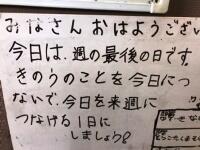 みなさん おはようござい
今日は、週の最後の日です。
きのうのことを今日につ
ないで、今日を来週に
つなげる1日に
しましょう。